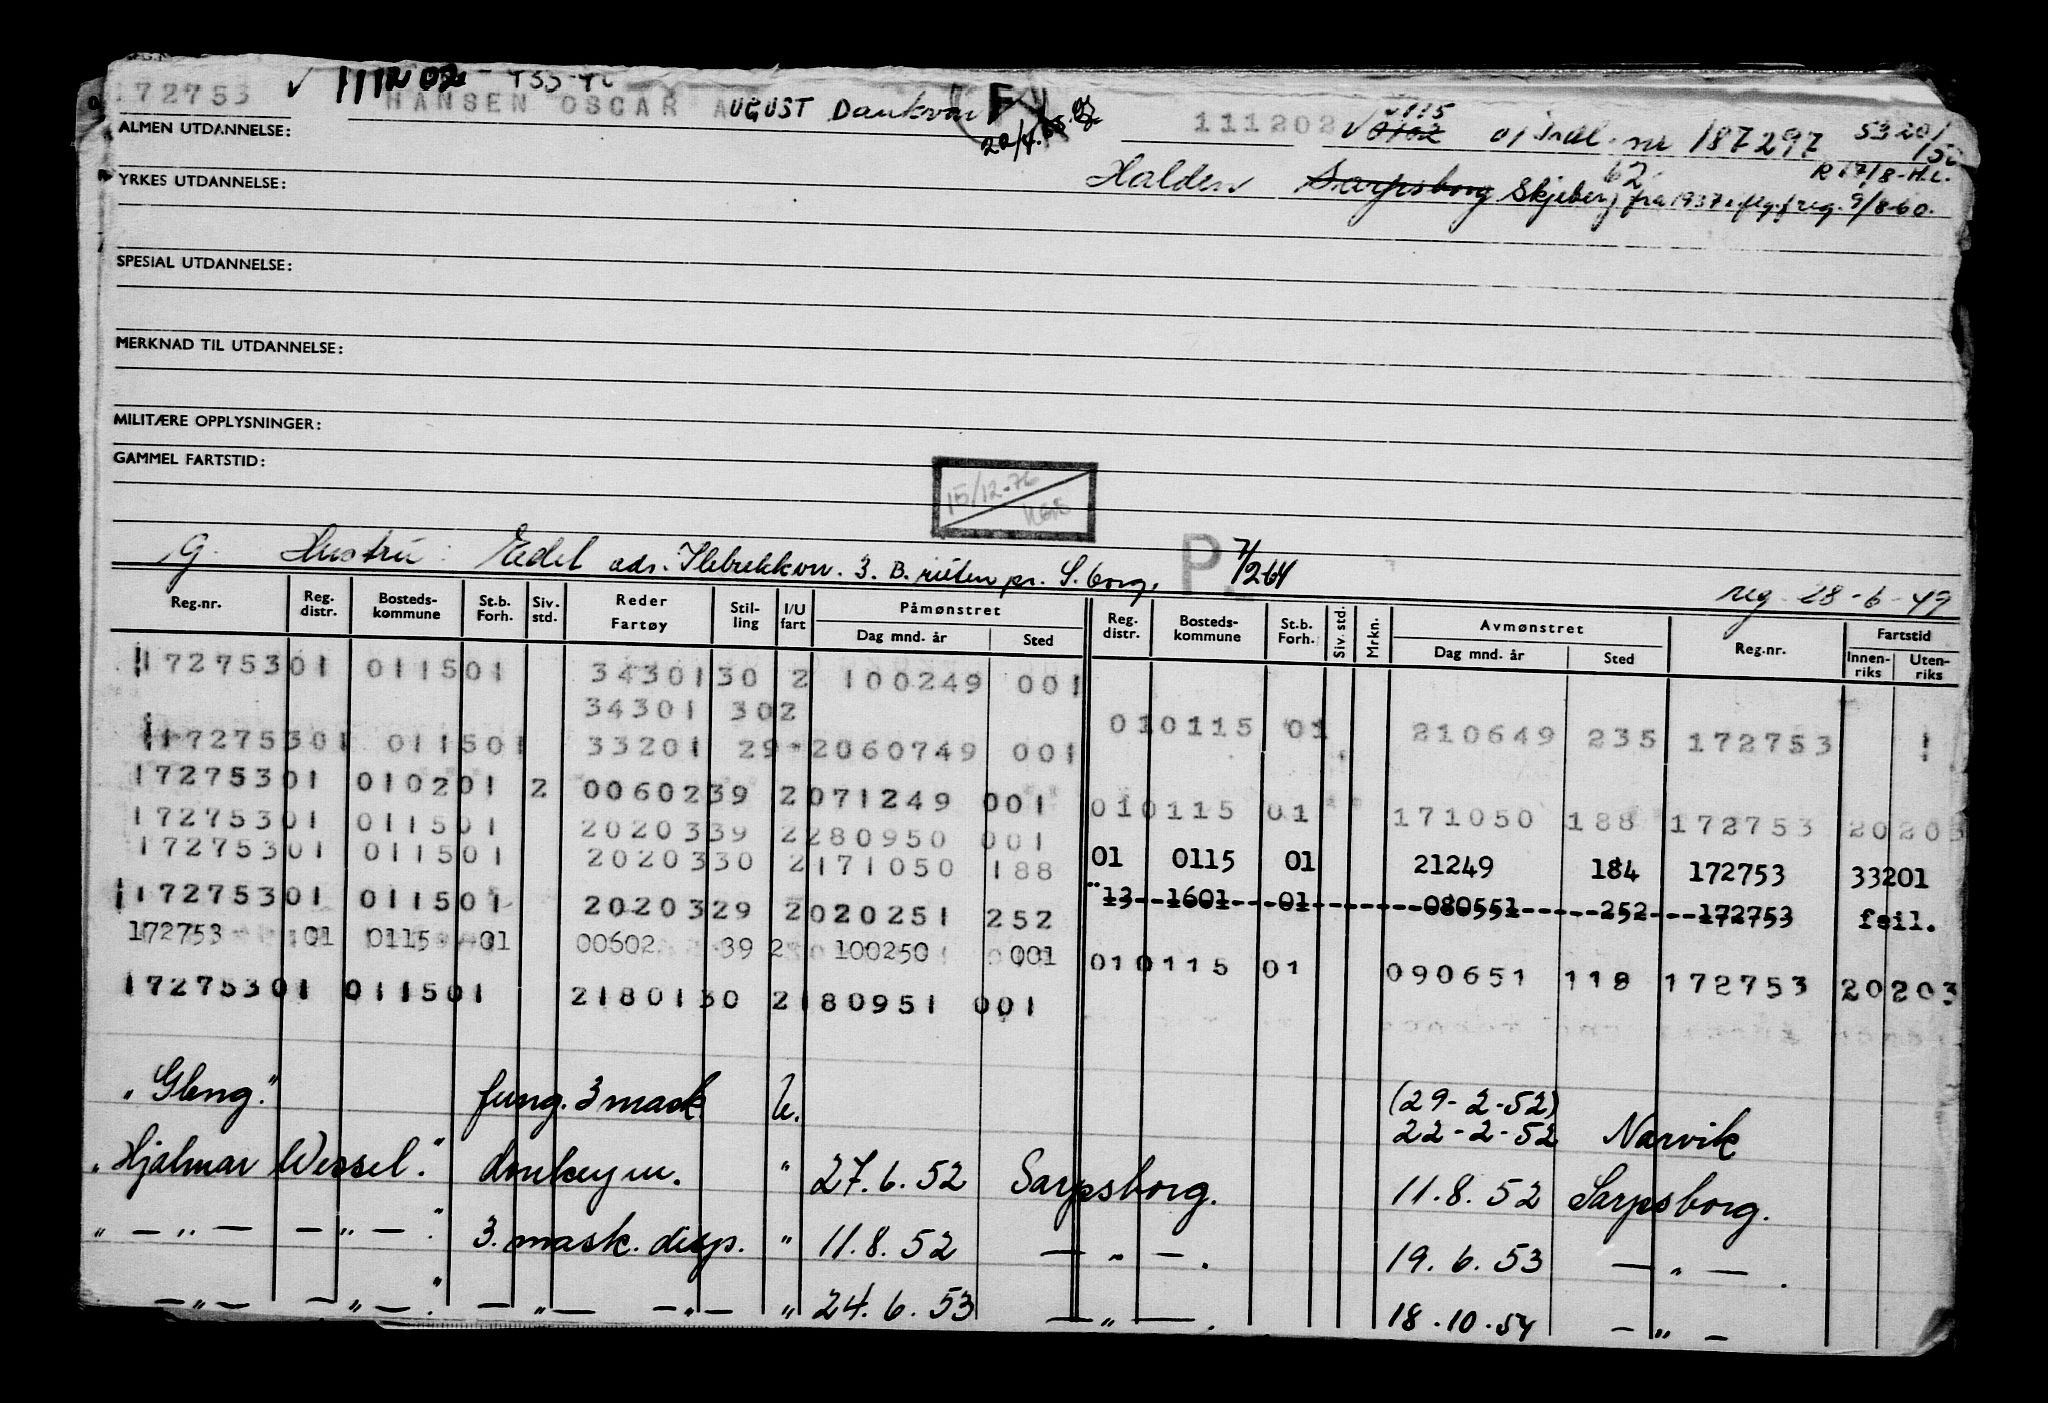 172753 ✓ 111202 HANSEN OSCAR AUGUST Dankvon F 20/4. 111202 ✓ 0115 0102 01 Indl. nr 187297 53 20/
ALMEN UTDANNELSE:
Halden Sarpsborg Skjeberg fra 1937 reg. 9/8-60. 62 R 17/8-H.L.
YRKES UTDANNELSE:
SPESIAL UTDANNELSE:
MERKNAD TIL UTDANNELSE:
MILITÆRE OPPLYSNINGER:
GAMMEL FARTSTID:
15/12-76
G. Hustru: Eidel adr. Ilebrekkvn. 3. B. ruten pr. S.borg. P 7/2-64 reg. 28-6-49
Reg.nr. Reg. distr. Bosteds- kommune St.b. Forh. Siv. std. Reder Fartøy Stil- ling I/U fart Påmønstret Dag mnd. år Sted Reg. distr. Bosteds- kommune St.b. Forh. Siv. std. Mrkn. Avmønstret Dag mnd. år Sted Reg.nr. Fartstid Innen- riks Uten- riks
172753 01 0115 01 34301 30 2 100249 001
34301 30 2 01 0115 01 210649 235 172753
172753 01 0115 01 33201 29 2 060749 001
172753 01 0102 01 2 00602 39 2 071249 001 01 0115 01 171050 188 172753 20203
172753 01 0115 01 20203 39 2 280950 001
172753 01 0115 01 20203 30 2 171050 188 01 0115 01 21249 184 172753 33201
172753 01 0115 01 20203 29 2 020251 252 13 1601 01 080551 252 172753 feil.
172753 01 0115 01 00602 39 2 100250 001 01 0115 01 090651 118 172753 20203
172753 01 0115 01 21801 30 2 180951 001
"Gleng." fung. 3 mask U. (29-2-52)
22-2-52 Narvik
"Hjalmar Wessel." donkeym. " 27.6.52 Sarpsborg. 11.8.52 Sarpsborg.
" — " — — " — ." 3. mask. disp. " 11.8.52 — " — . 19.6.53 — " — .
— " — — " — ." — " — — " — " 24.6.53 — " — . 18.10.54 — " —